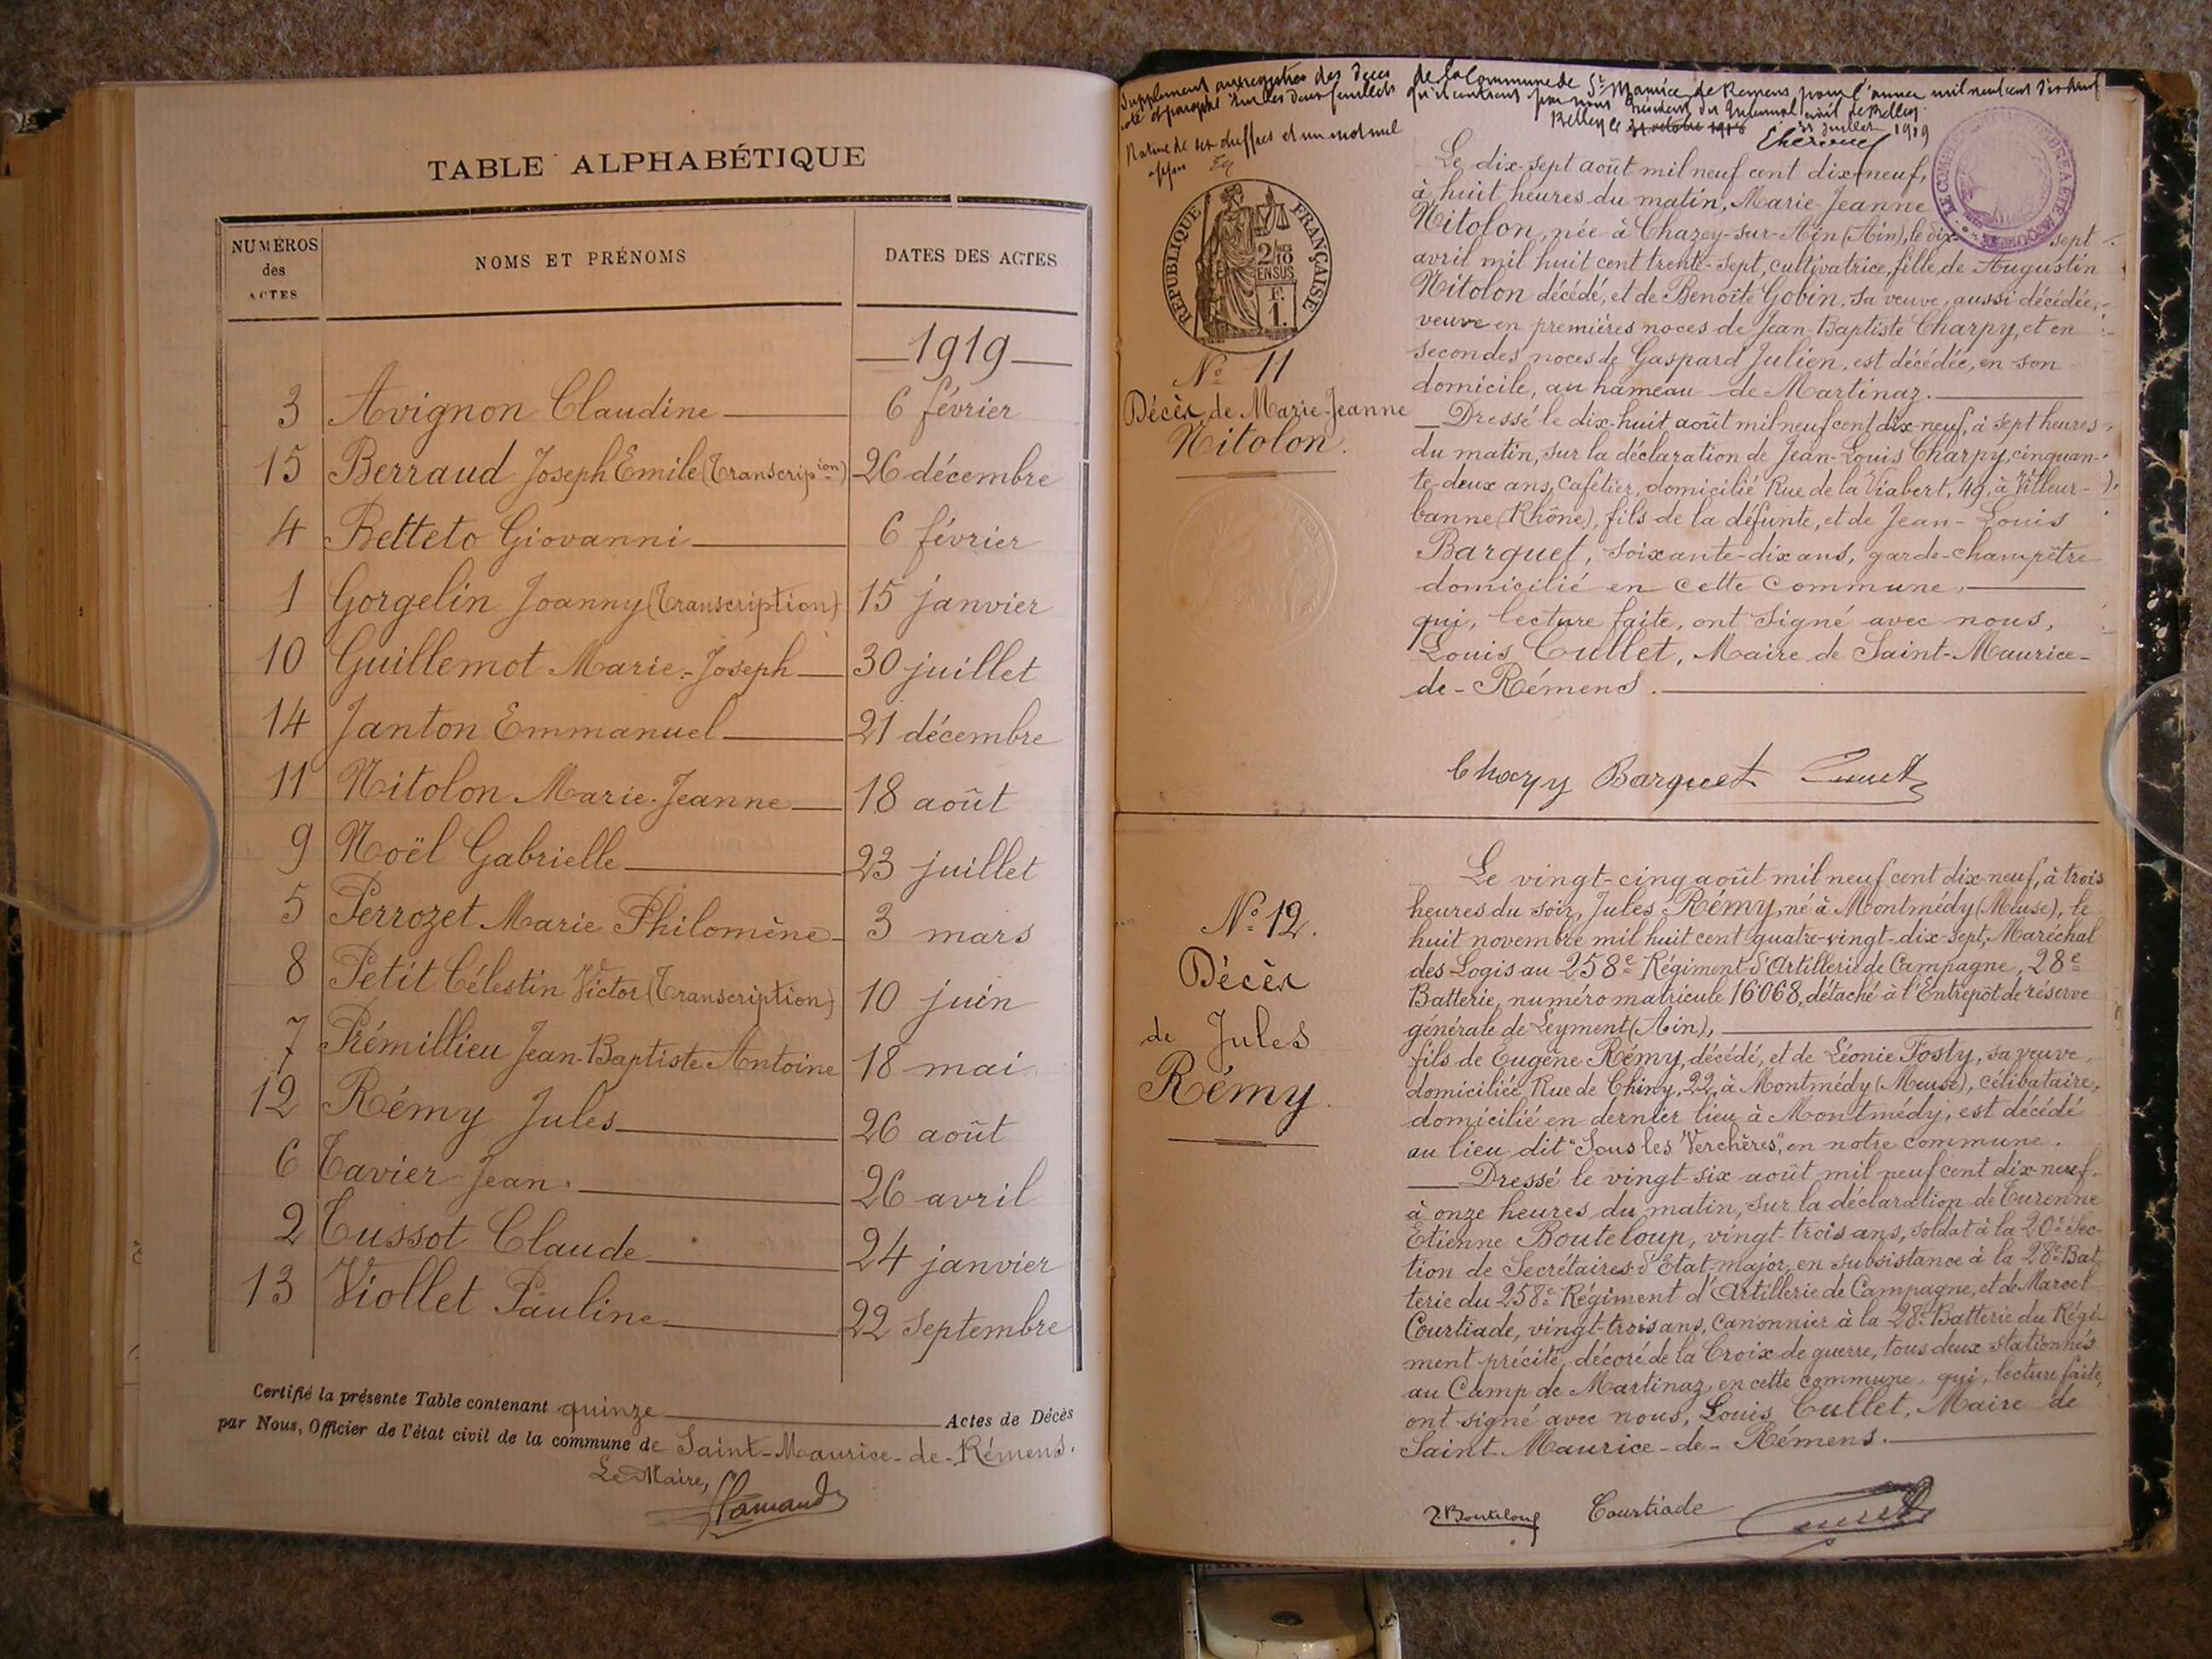 TABLE ALPHABÉTIQUE
NUMÉROS des ACTES
NOMS ET PRÉNOMS
DATES DES ACTES
1919
3 Avignon Claudine 6 février
15 Berraud Joseph Emile (Transcripion) 26 décembre
4 Betteto Giovanni 6 février
1 Gorgelin Joanny (Transcription) 15 janvier
10 Guillemot Marie-Joseph 30 juillet
14 Janton Emmanuel 21 décembre
11 Nitolon Marie-Jeanne 18 août
9 Noël Gabrielle 23 juillet
5 Perrozet Marie Philomène 3 mars
8 Petit Célestin Victor (Transcription) 10 juin
7 Prémillieu Jean-Baptiste Antoine 18 mai
12 Rémy Jules 26 août
6 Tavier Jean 26 avril
2 Tussot Claude 24 janvier
13 Viollet Pauline 22 septembre
Certifié la présente Table contenant quinze Actes de Décès
par Nous, Officier de l'état civil de la commune de Saint-Maurice-de-Rémens.
Le Maire,
Supplément aux registres des Décès de la Commune de St Maurice de Remens pour l'année mil neuf cent dix neuf
coté et paraphé sur les deux feuillets qu'il contient par nous Président du Tribunal civil de Belley
Belley le 31 octobre 1918 31 juillet 1919
RÉPUBLIQUE FRANÇAISE
2/10 EN SUS
F. 1.
No 11
Décès de Marie-Jeanne
Nitolon.
Le dix-sept août mil neuf cent dix-neuf,
à huit heures du matin, Marie-Jeanne
Nitolon, née à Chazey-sur-Ain (Ain), le dix-sept
avril mil huit cent trente-sept, cultivatrice, fille de Augustin
Nitolon décédé, et de Benoîte Gobin, sa veuve, aussi décédée,
veuve en premières noces de Jean-Baptiste Charpy, et en
secondes noces de Gaspard Julien, est décédée, en son
domicile, au hameau de Martinaz.
Dressé le dix-huit août mil neuf cent dix-neuf, à sept heures
du matin, sur la déclaration de Jean-Louis Charpy, cinquan-
te-deux ans, cafetier, domicilié Rue de la Viabert, 49, à Villeur-
banne (Rhône), fils de la défunte, et de Jean-Louis
Barquet, soixante-dix ans, garde-champêtre
domicilié en cette commune,
qui, lecture faite, ont signé avec nous,
Louis Cullet, Maire de Saint-Maurice-
de-Rémens.
Charpy Barquet Cullet
No 12.
Décès
de Jules
Rémy.
Le vingt-cinq août mil neuf cent dix-neuf, à trois
heures du soir, Jules Rémy, né à Montmédy (Meuse), le
huit novembre mil huit cent quatre-vingt-dix-sept, Maréchal
des Logis au 258e Régiment d'Artillerie de Campagne, 28e
Batterie, numéro matricule 16068, détaché à l'Entrepôt de réserve
générale de Leyment (Ain),
fils de Eugène Rémy, décédé, et de Léonie Tosty, sa veuve,
domiciliée Rue de Chiny, 22, à Montmédy (Meuse), célibataire,
domicilié en dernier lieu à Montmédy, est décédé
au lieu dit "Sous les Verchères", en notre commune.
Dressé le vingt-six août mil neuf cent dix-neuf,
à onze heures du matin, sur la déclaration de Turenne
Etienne Bouteloup, vingt-trois ans, soldat à la 20e Sec-
tion de Secrétaires d'Etat-major, en subsistance à la 28e Bat
terie du 258e Régiment d'Artillerie de Campagne, et de Marcel
Courtiade, vingt-trois ans, Canonnier à la 28e Batterie du Régi-
ment précité, décoré de la Croix de guerre, tous deux stationnés
au Camp de Martinaz, en cette commune, qui, lecture faite,
ont signé avec nous, Louis Cullet, Maire de
Saint-Maurice-de-Rémens.
Bouteloup Courtiade Cullet